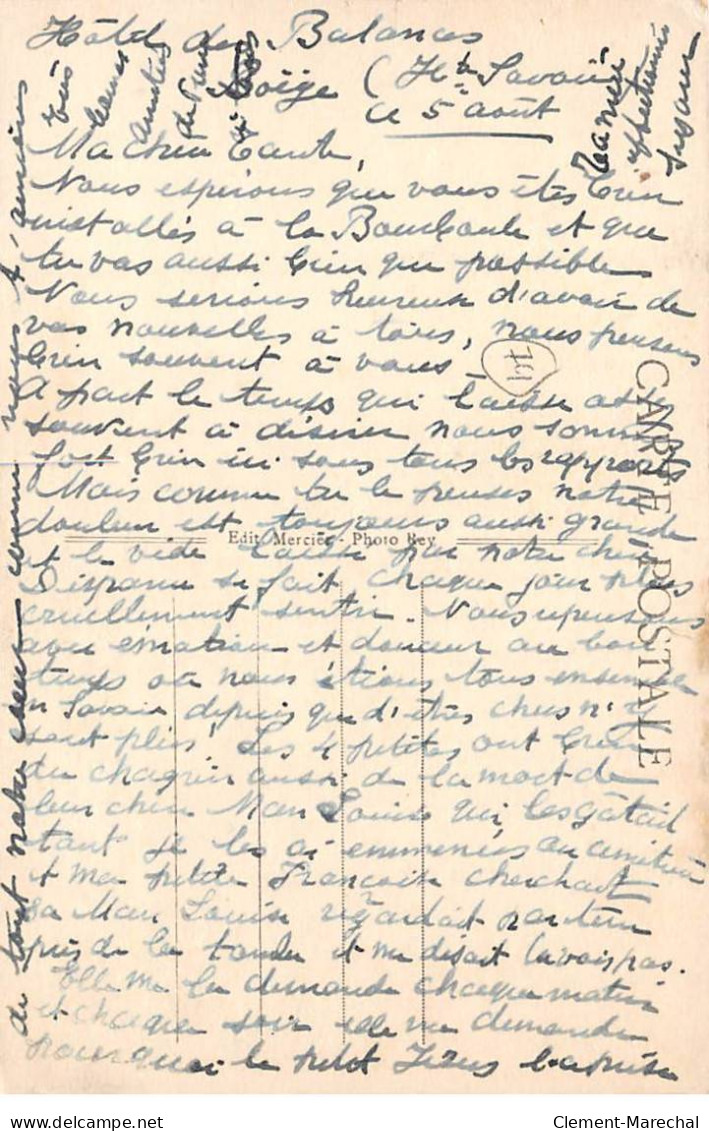 Hôtel des Balances
Boëge (Hte Savoie)
ce 5 août
Ma chère Tante,
Nous espérons que vous êtes bien
installés à la Bourboule et que
tu vas aussi bien que possible
Nous serions heureux d'avoir de
vos nouvelles à tous, nous pensons
bien souvent à vous
A part le temps qui laisse assez
souvent à désirer nous sommes
fort bien ici sous tous les rapports
Mais comme tu le penses notre
douleur est toujours aussi grande
et le vide laissé par notre chère
Disparue se fait chaque jour plus
cruellement sentir. Nous repensons
avec émotion et douceur au bon
temps où nous étions tous ensemble
en Savoie depuis que d'êtres chers n'y
sont plus! Les 4 petites ont bien
du chagrin aussi de la mort de
leur chère Man Louise qui les gâtait
tant je les ai emmenées au cimetière
et ma petite Françoise cherchait
sa Man Louise regardait par terre
près de la tombe et me disait la vois pas.
Elle me la demande chaque matin
et chaque soir elle me demande
pourquoi le petit Jésus l'a prise
de tout notre cœur comme nous t'aimons
Très
bonnes
amitiés
de
Ta nièce
affectionnée
Suzanne
CARTE POSTALE
Edit. Mercier - Photo Rey
Clement-Marechal